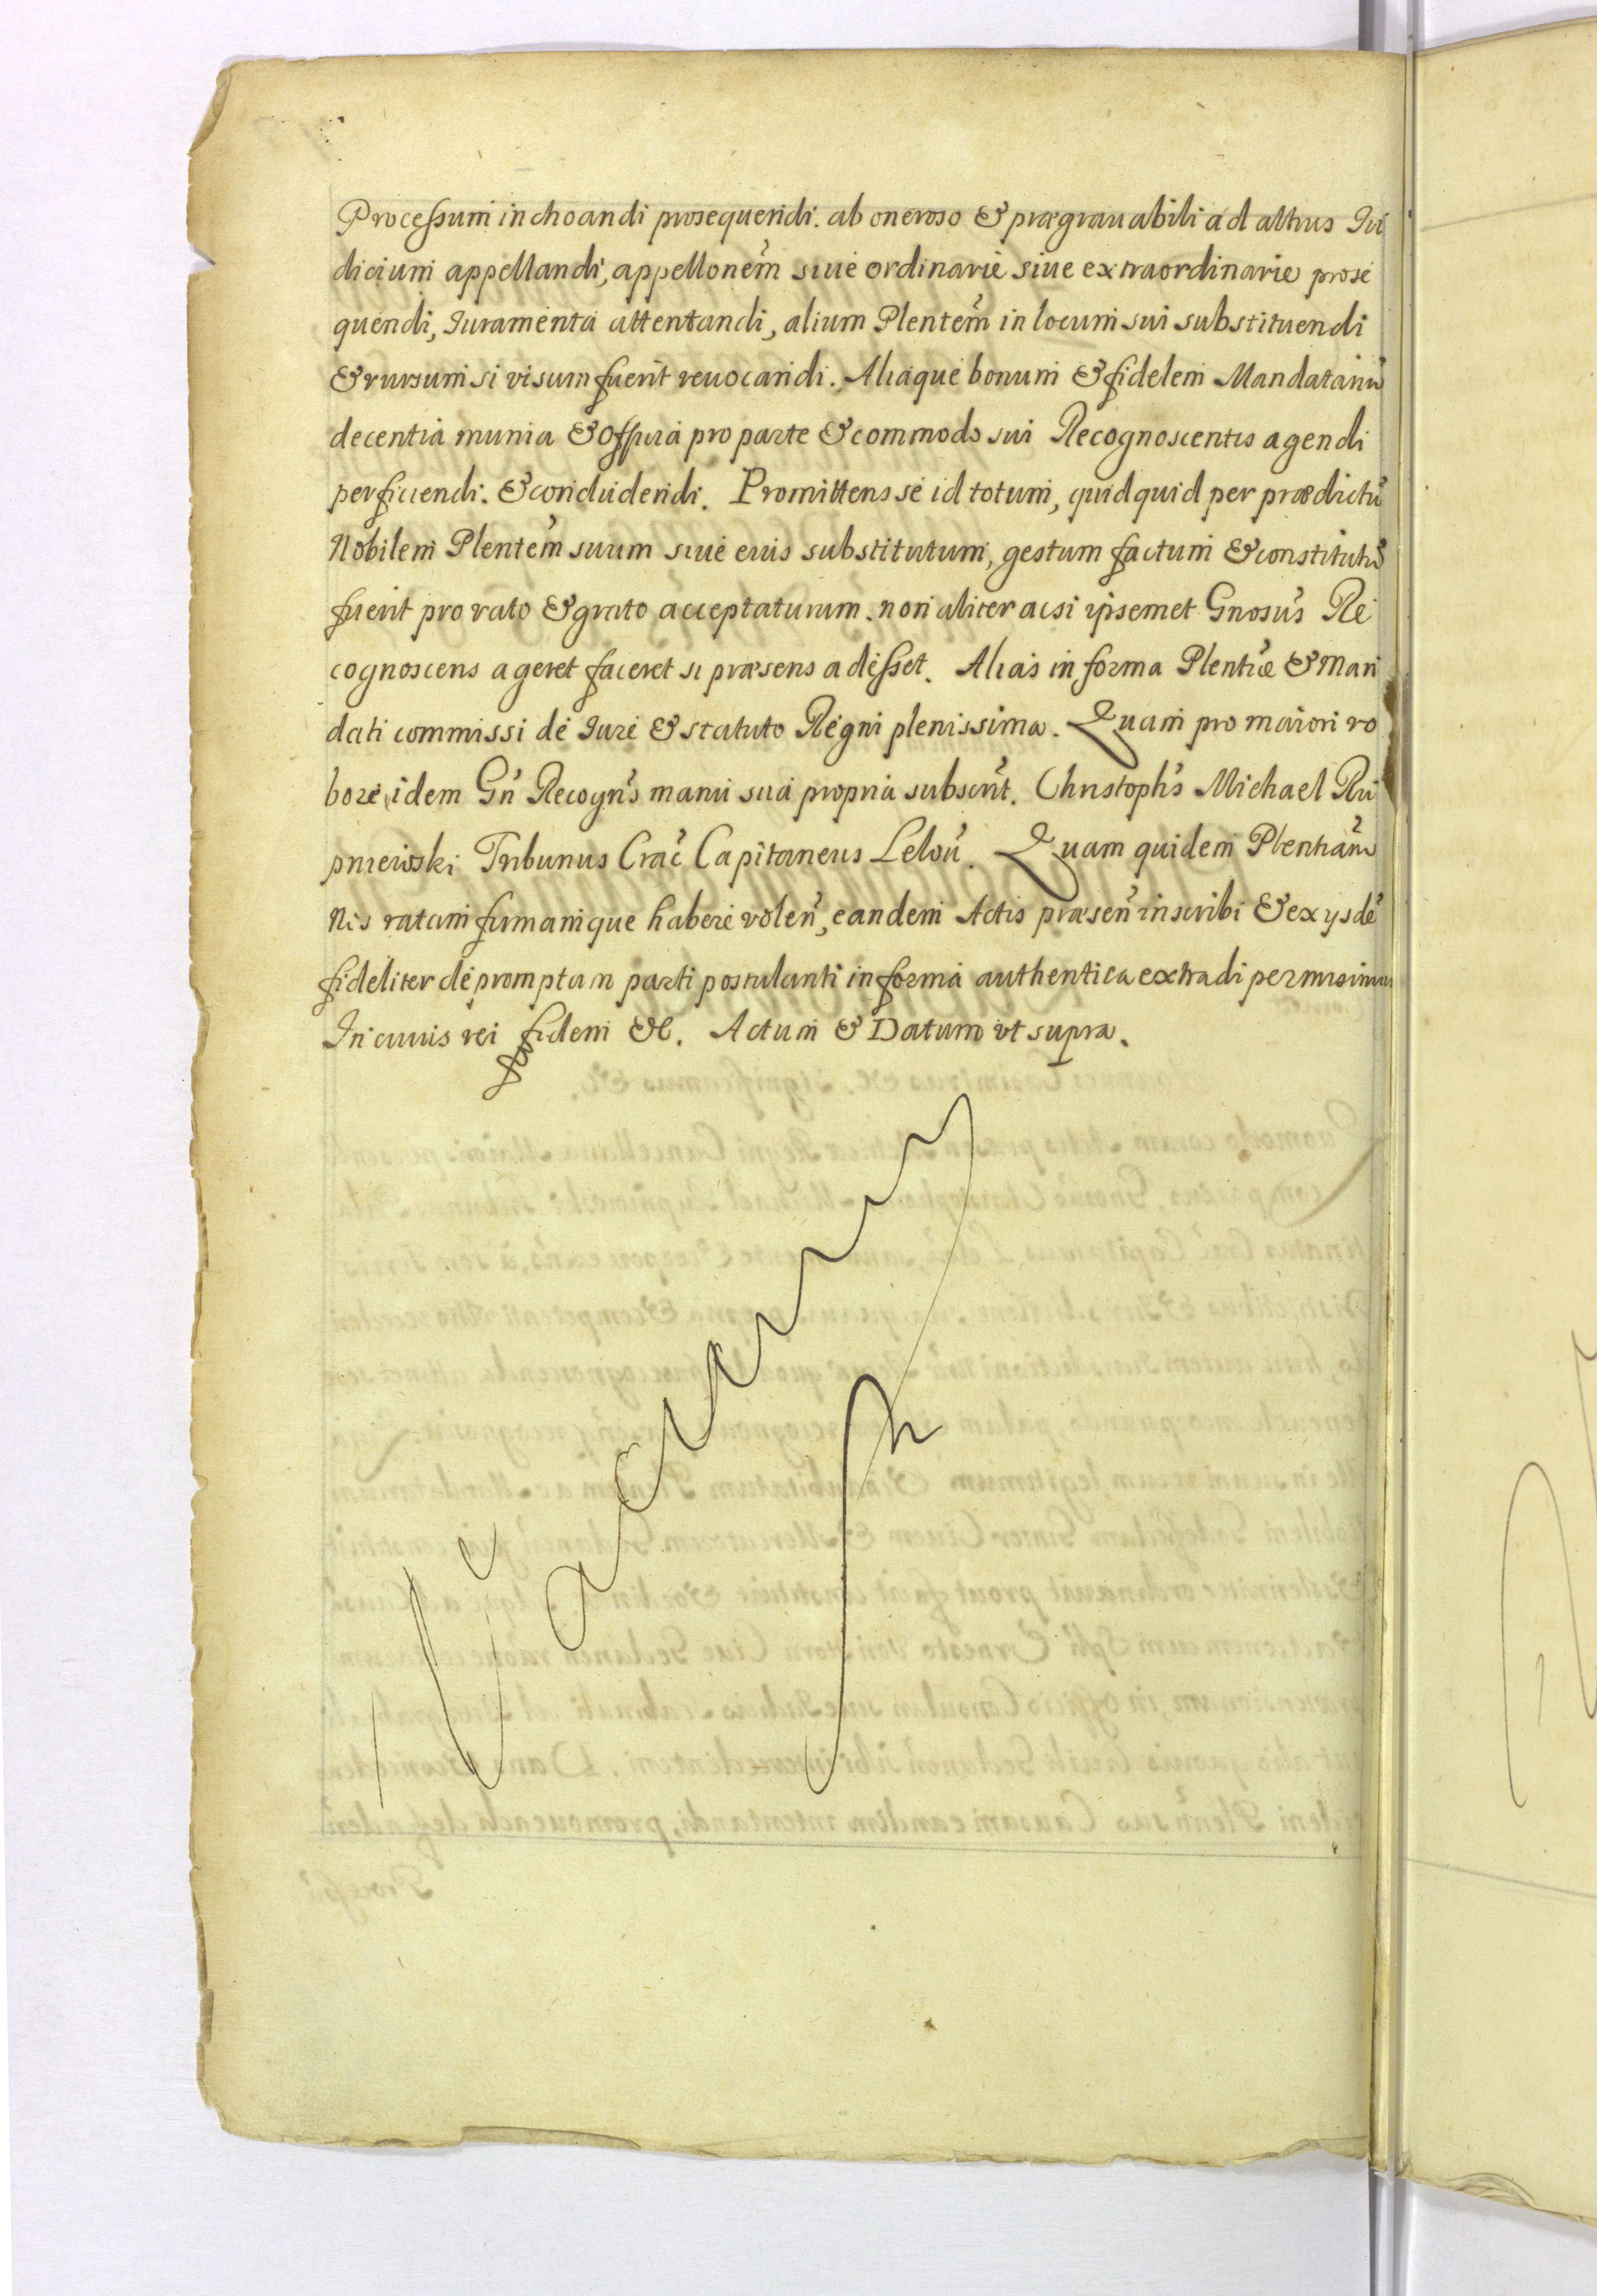 Processum inchoandi prosequendi. ab oneroso & prægrauabili ad altius Iu
dicium appellandi, appellonem̃ siue ordinarie siue extraordinarie prose
quendi, Iuramenta attentandi, alium Plentem̃ in locum sui substituendi
& rursum si visum fuerit reuocandi. Aliaque bonum & fidelem Mandatariũ
decentia munia & officia pro parte & commodo sui Recognoscentis agendi
perficiendi. & concludendi. Promittens se id totum, quidquid per prædictũ
Nobilem Plentem̃ suum siue eius substitutum, gestum factum & constitutũ
fuerit pro rato & grato acceptaturum. non aliter acsi ipsemet Gnosũs Re
cognoscens ageret faceret si præsens adesset. Alias in forma Plentiæ & Man
dati commissi de Iure & statuto Regni plenissima. Quam pro maiori ro
bore idem Gñ Recogñs manu sua propria subscrit̃. Christophs̃ Michael Ru
pniewski Tribunus Crac̃ Capitaneus Leloũ. Quam quidem Plentiam̃
Nos ratam firmamque habere voleñ, eandem Actis præseñ inscribi & ex ysdẽ
fideliter depromptam parti postulanti in forma authentica extradi permisimus
In cuius rei fidem &c. Actum & Datum vt supra.